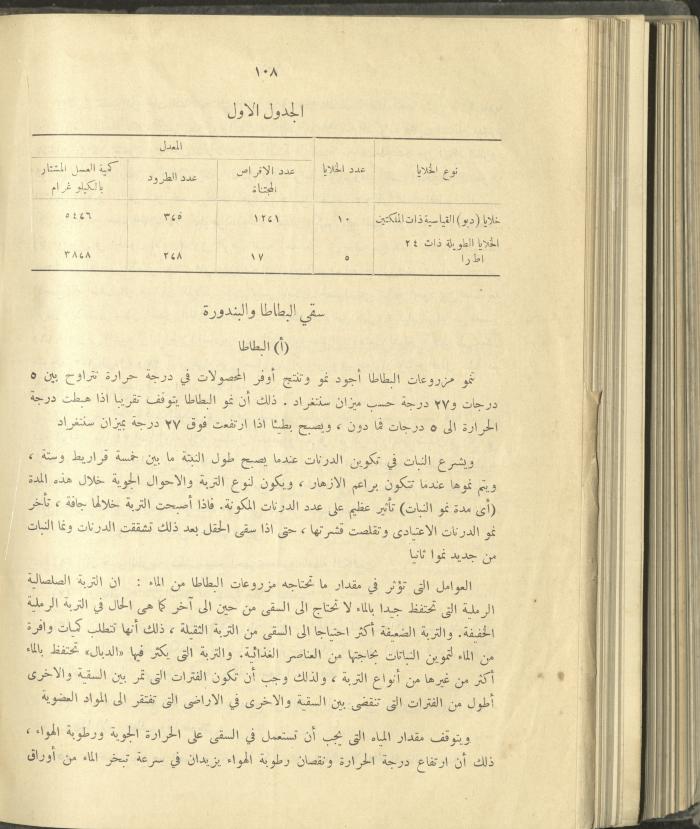 ١٠٨
الجدول الاول
نوع الخلايا
عدد الخلايا
المعدل
عدد الاقراص المجتناة
عدد الطرود
كمية العسل المشتار بالكيلو غرام
خلايا (دبو) القياسية ذات الملكتين ١٠ ١٢٤١ ٣٤٥ ٥٤٧٦
الخلايا الطويلة ذات ٢٤
اطرا ٥ ١٧ ٢٤٨ ٣٨٤٨
سقي البطاطا والبندورة
(أ) البطاطا
تنمو مزروعات البطاطا أجود نمو وتنتج أوفر المحصولات في درجة حرارة تتراوح بين ٥
درجات و٢٧ درجة حسب ميزان سنتغراد . ذلك أن نمو البطاطا يتوقف تقريبا اذا هبطت درجة
الحرارة الى ٥ درجات فما دون ، ويصبح بطيئا اذا ارتفعت فوق ٢٧ درجة بميزان سنتغراد
ويشرع النبات في تكوين الدرنات عندما يصبح طول النبتة ما بين خمسة قراريط وستة ،
ويتم نموها عندما تتكون براعم الازهار ، ويكون لنوع التربة والاحوال الجوية خلال هذه المدة
(أى مدة نمو النبات) تأثير عظيم على عدد الدرنات المكونة. فاذا أصبحت التربة خلالها جافة ، تأخر
نمو الدرنات الاعتيادى وتقلصت قشرتها ، حتى اذا سقى الحقل بعد ذلك تشققت الدرنات ونما النبات
من جديد نموا ثانيا
العوامل التى تؤثر في مقدار ما تحتاجه مزروعات البطاطا من الماء : ان التربة الصلصالية
الرملية التى تحتفظ جيدا بالماء لا تحتاج الى السقى من حين الى آخر كما هى الحال في التربة الرملية
الخفيفة. والتربة الضعيفة أكثر احتياجا الى السقى من التربة الثقيلة ، ذلك أنها تتطلب كميات وافرة
من الماء لتموين النباتات بحاجتها من العناصر الغذائية. والتربة التى يكثر فيها «الدبال» تحتفظ بالماء
أكثر من غيرها من أنواع التربة ، ولذلك وجب أن تكون الفترات التى تمر بين السقية والاخرى
أطول من الفترات التى تنقضى بين السقية والاخرى في الاراضى التى تفتقر الى المواد العضوية
ويتوقف مقدار المياه التى يجب أن تستعمل في السقى على الحرارة الجوية ورطوبة الهواء ،
ذلك أن ارتفاع درجة الحرارة ونقصان رطوبة الهواء يزيدان في سرعة تبخر الماء من أوراق